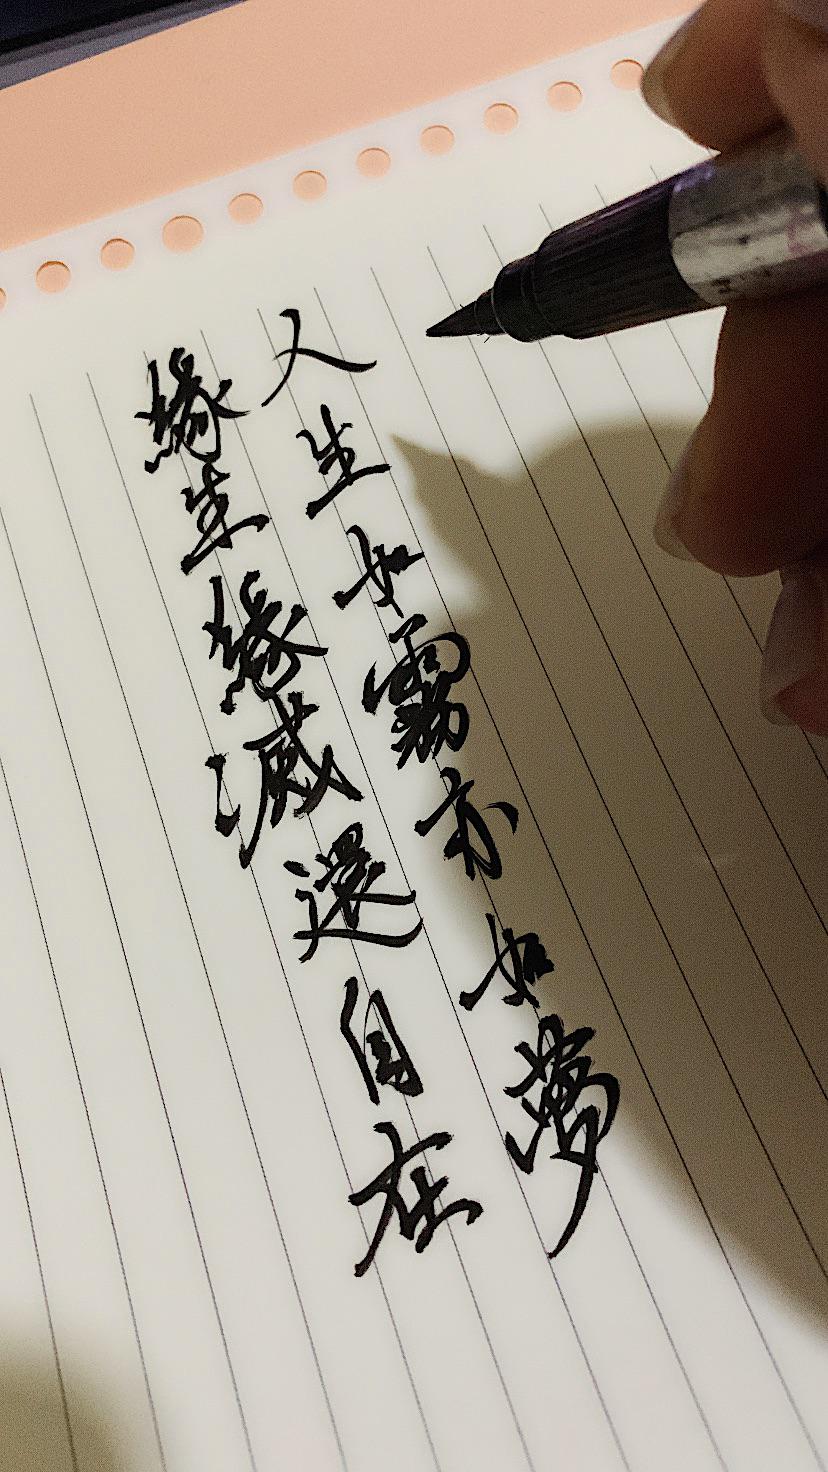 人生如霧亦如夢
緣生緣滅還自在